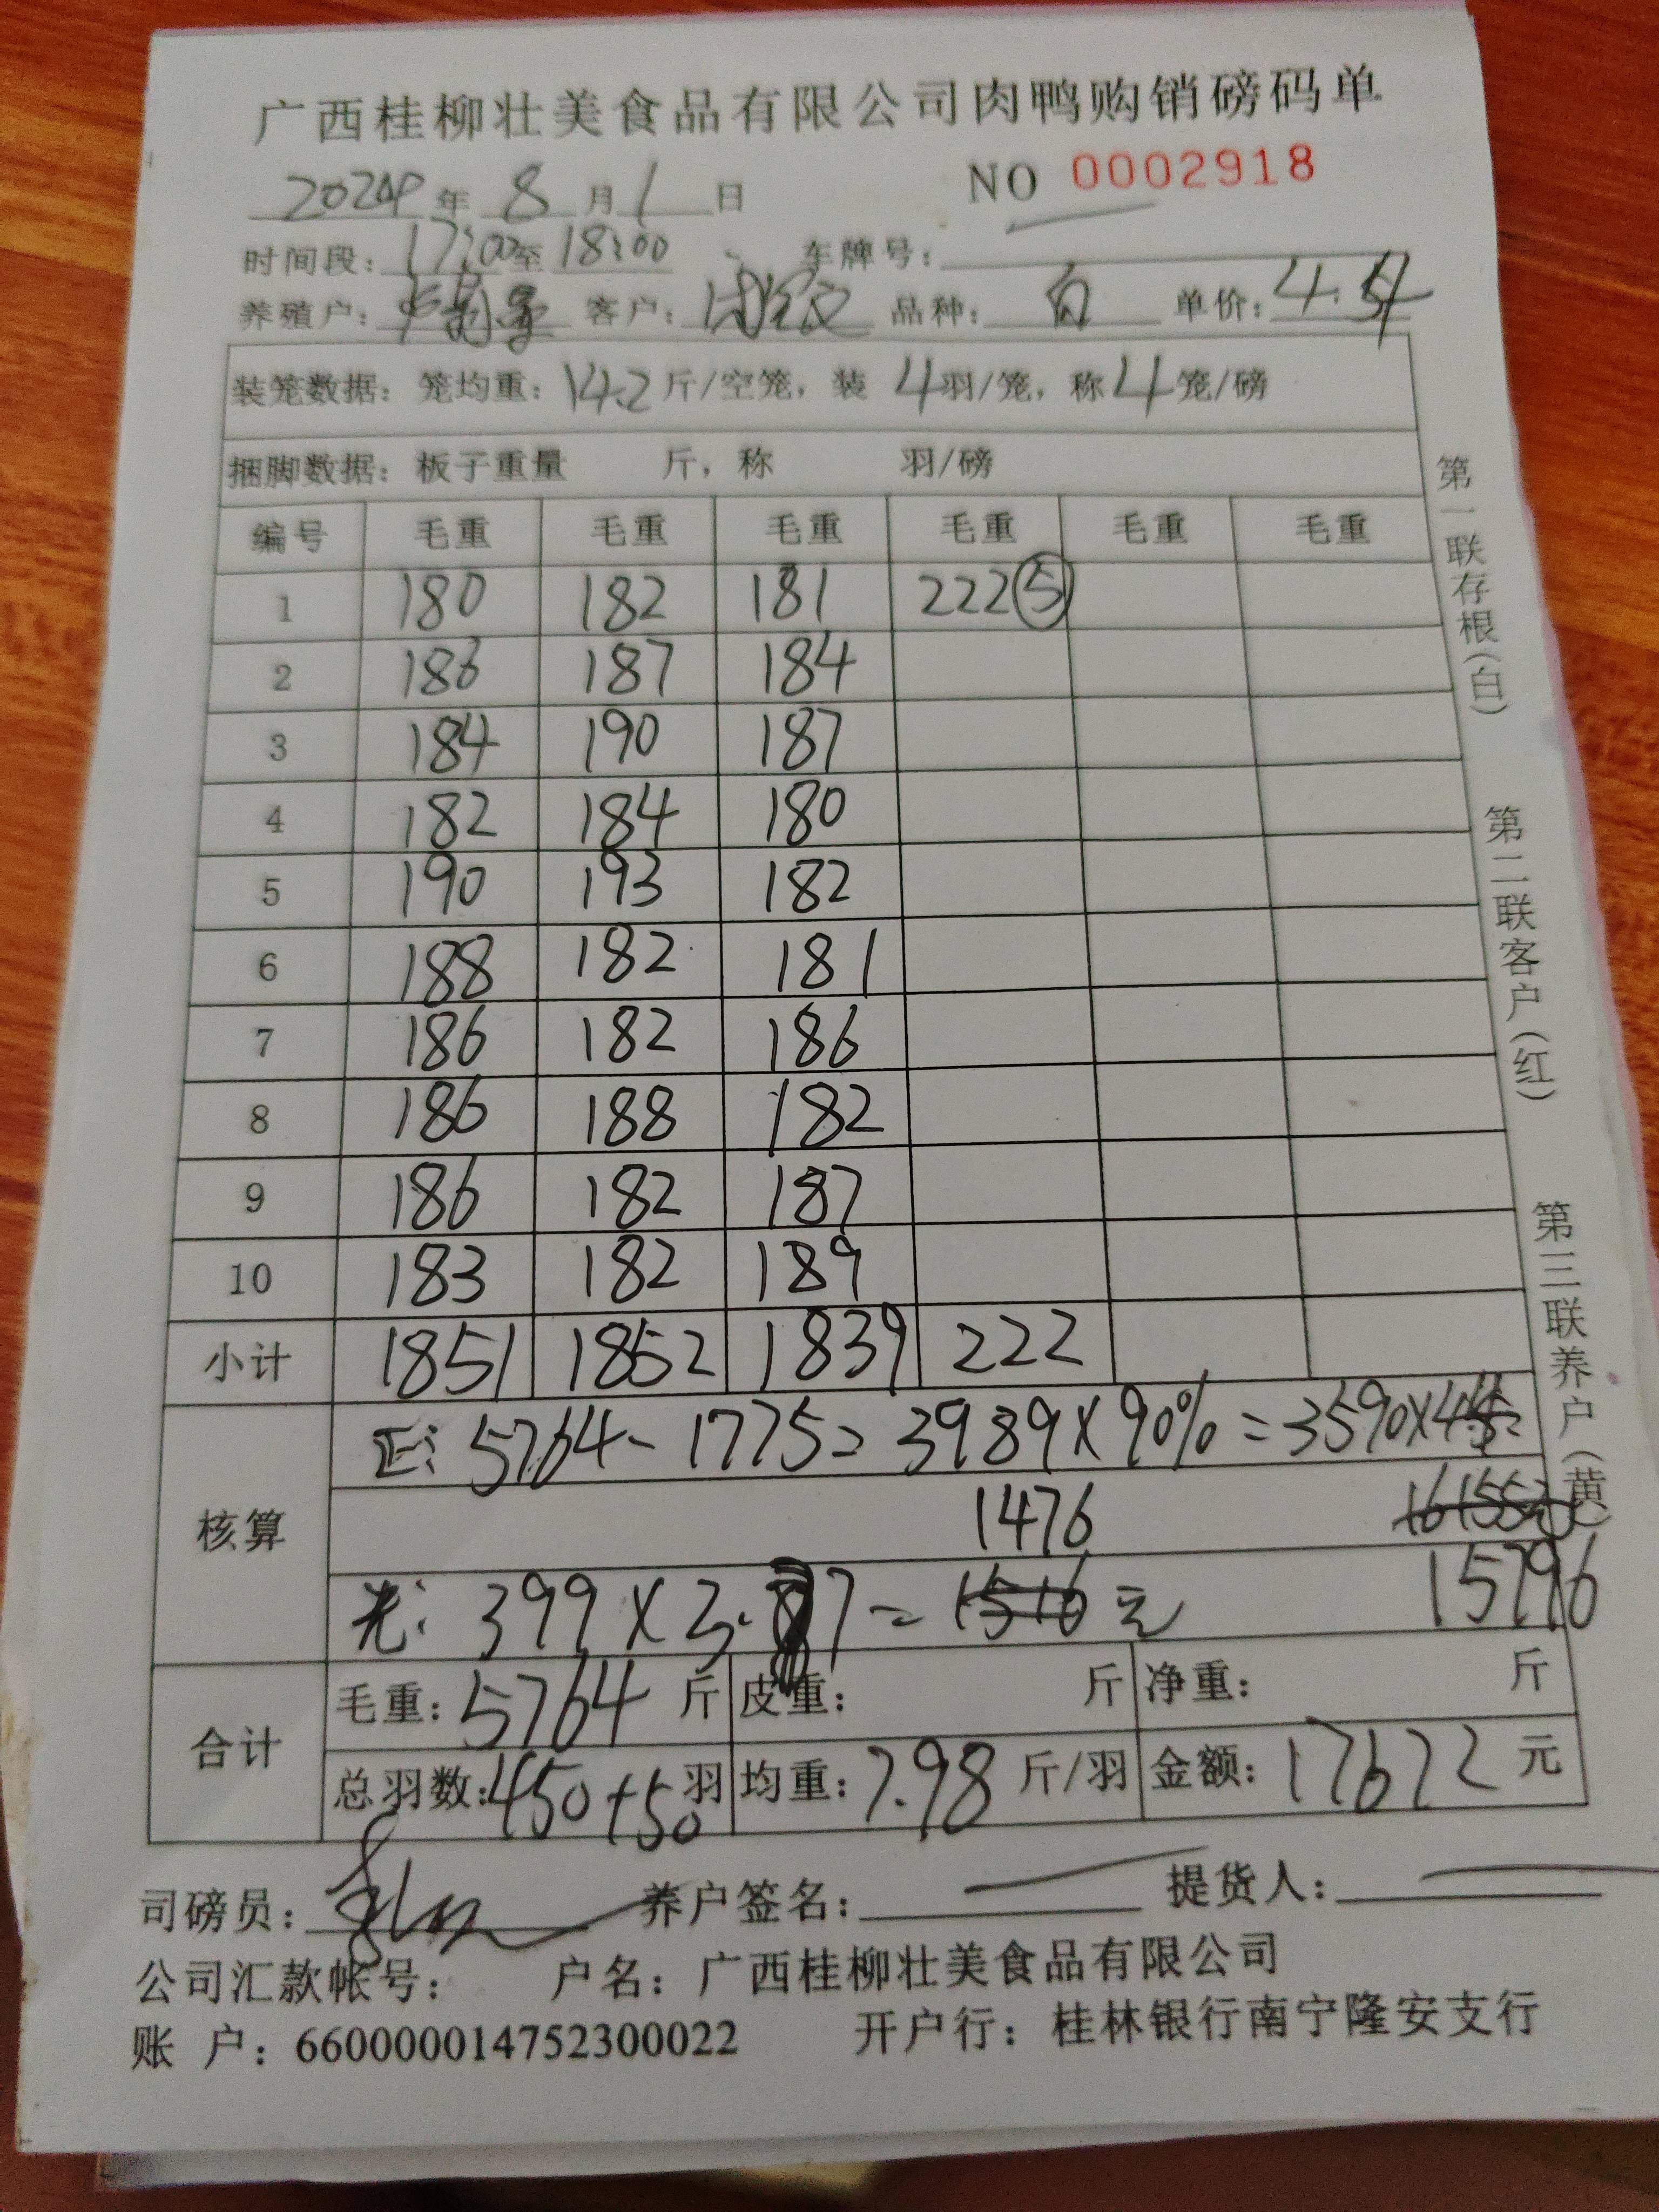 广西桂柳壮美食品有限公司肉鸭购销磅码单
2024年 8月1日 NO 0002918
时间段：17:00至18:00 车牌号：
养殖户： 客户： 品种：白 单价：4.4
装笼数据：笼均重：14.2斤/空笼，装4羽/笼，称4笼/磅
捆脚数据：板子重量 斤，称 羽/磅
编号 毛重 毛重 毛重 毛重 毛重 毛重
1 180 182 181 222⑤
2 186 187 184
3 184 190 187
4 182 184 180
5 190 193 182
6 188 182 181
7 186 182 186
8 186 188 182
9 186 182 187
10 183 182 189
小计 1851 1852 1839 222
核算 正：5764-1775=3989×90%=3590×4.4
1476 16155元
光：399×3.7=1516元 15796
合计 毛重：5764斤 皮重： 斤 净重： 斤
总羽数：450+50羽 均重：7.98斤/羽 金额：17672元
司磅员： 养户签名： 提货人：
公司汇款帐号： 户名：广西桂柳壮美食品有限公司
账 户：660000014752300022 开户行：桂林银行南宁隆安支行
第一联存根（白） 第二联客户（红） 第三联养户（黄）